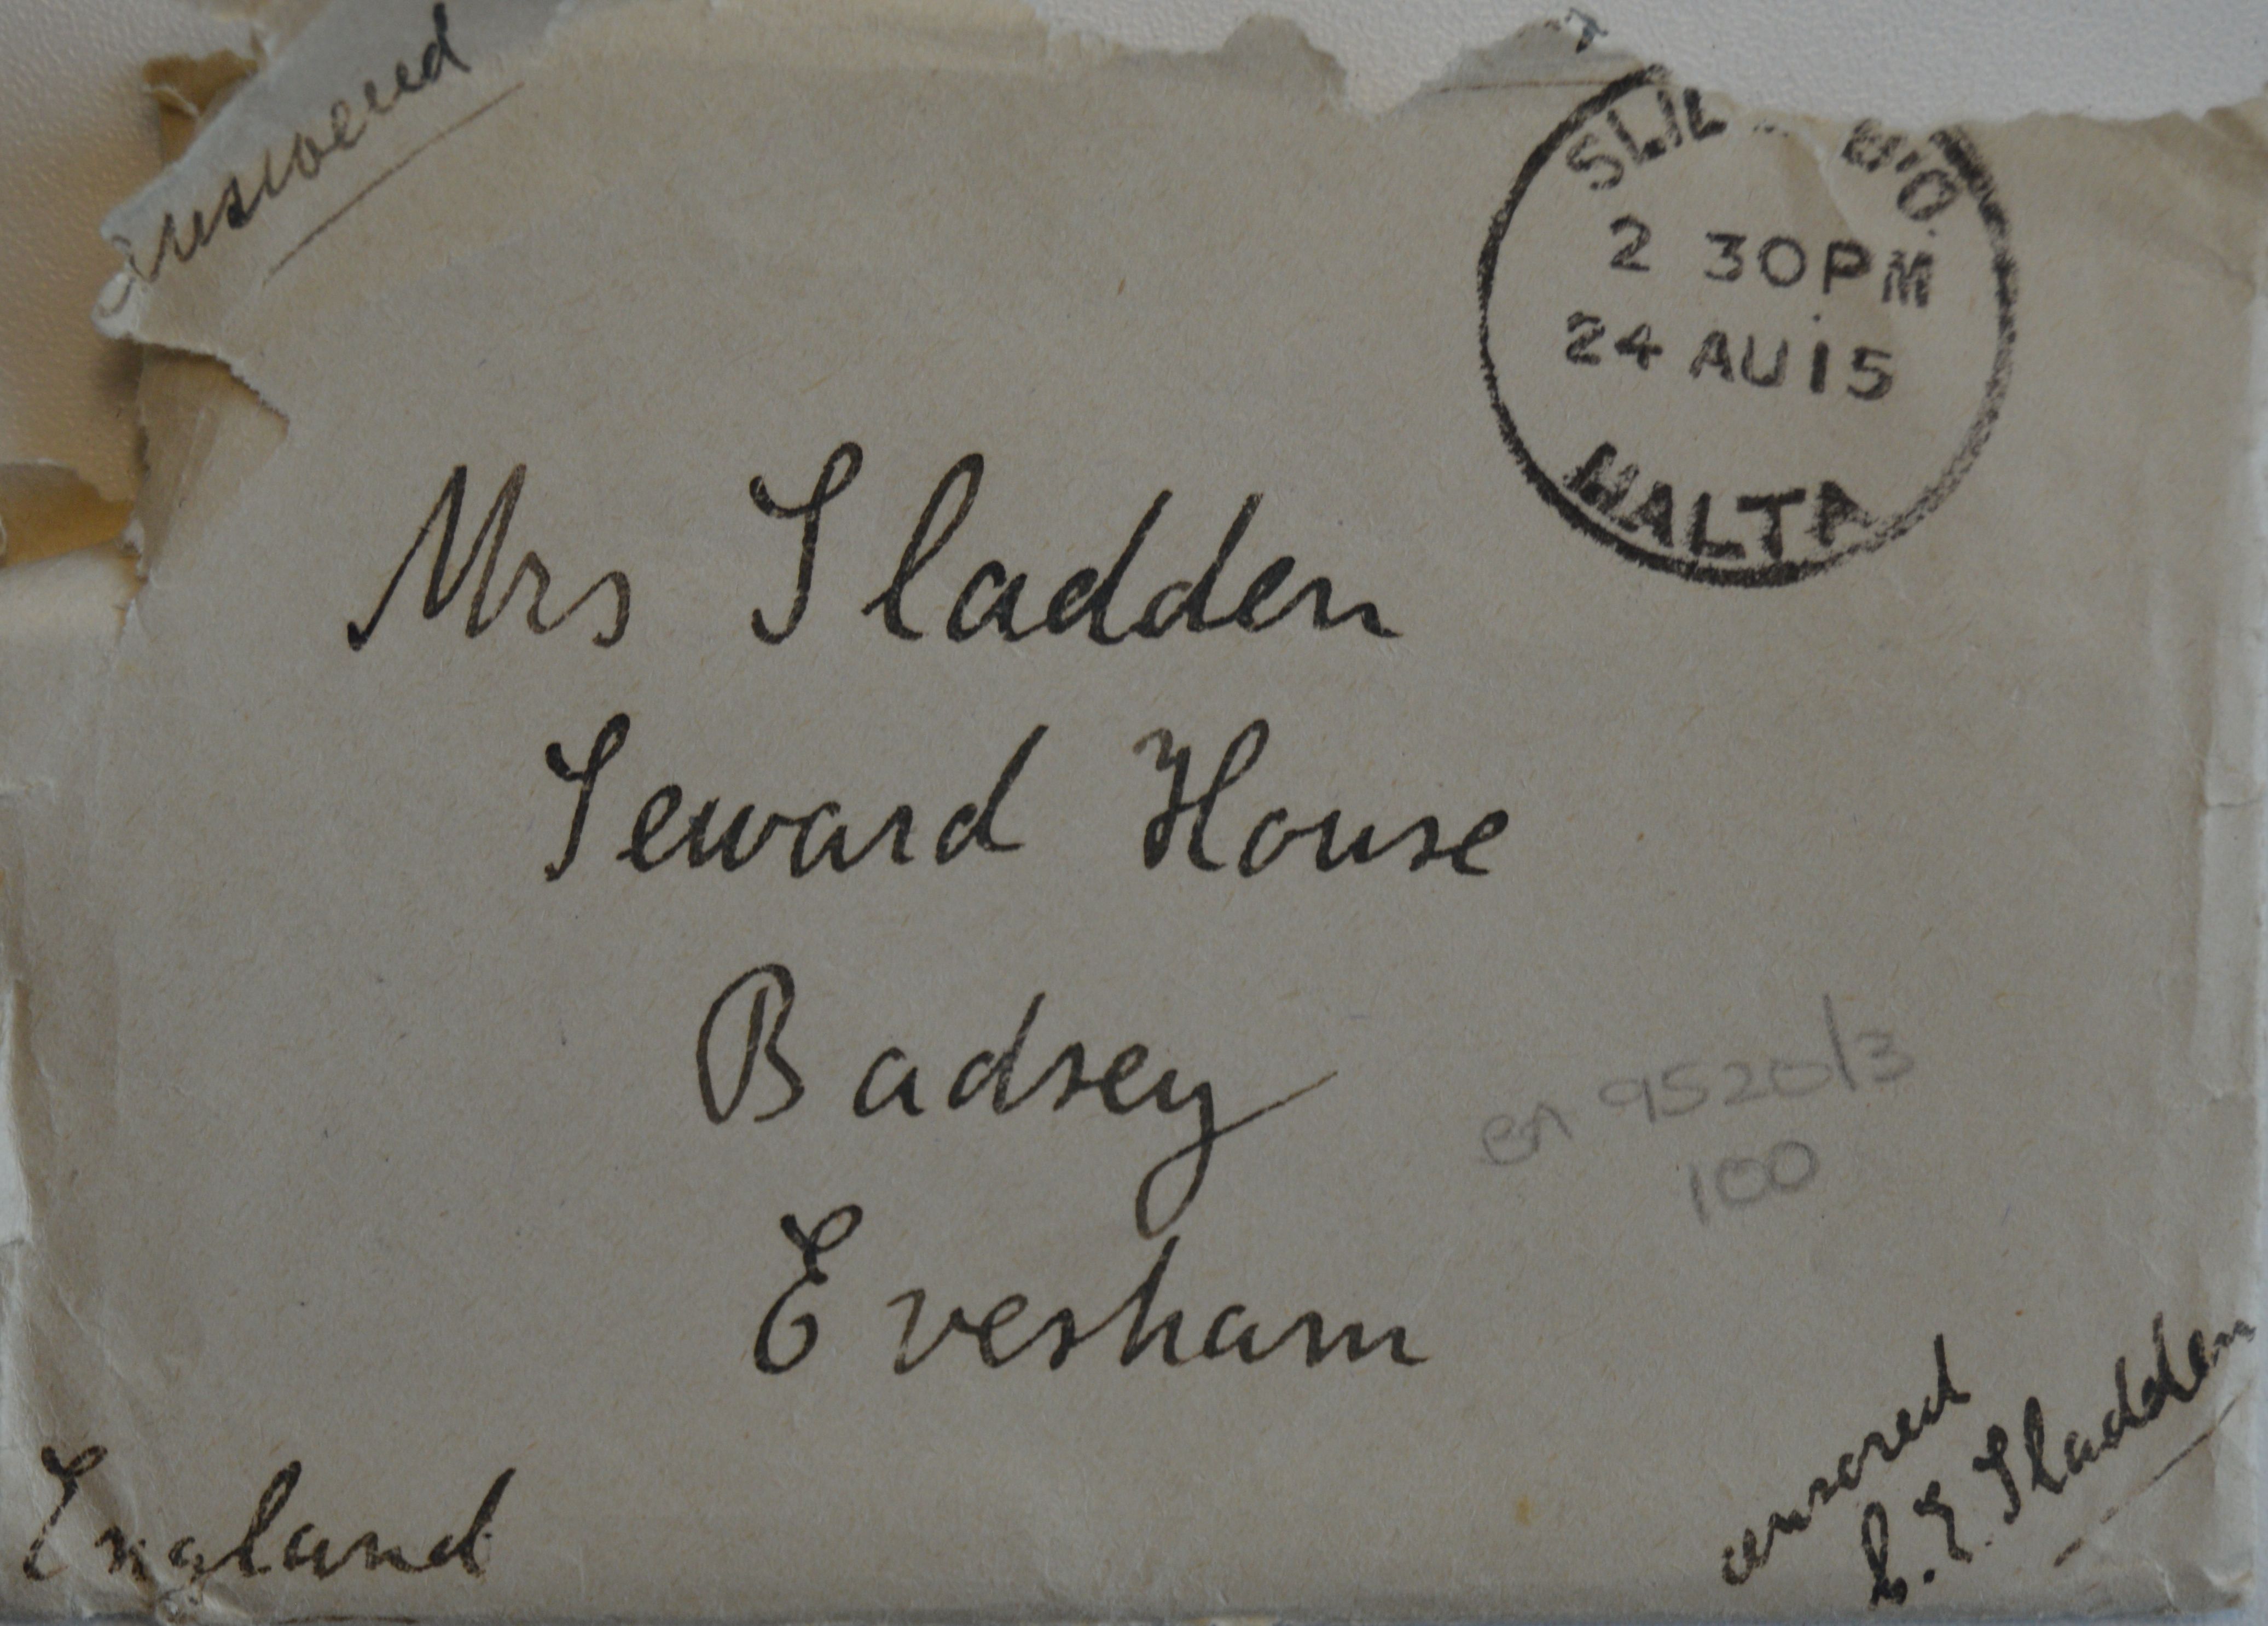 answered
2 30PM
24 AU 15
MALTA
Mrs Sladden
Seward House
Badsey
Evesham
England
9520/3
100
censored
Sladden